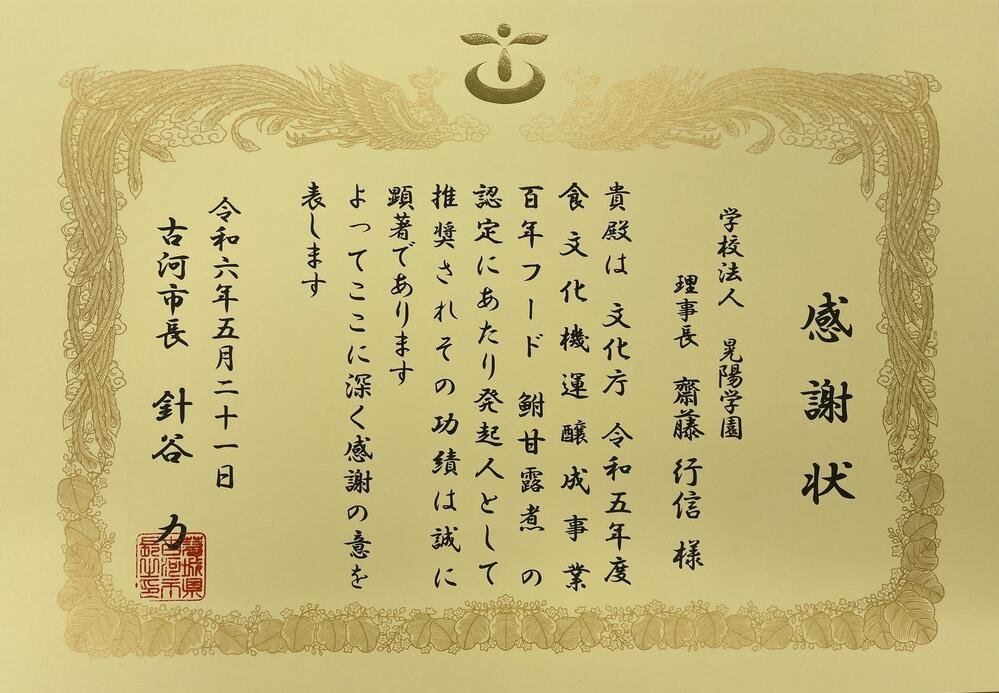 感謝状
学校法人　晃陽学園
理事長　齋藤　行信　様
貴殿は　文化庁　令和五年度
食文化機運醸成事業
百年フード　鮒甘露煮　の
認定にあたり発起人として
推奨されその功績は誠に
顕著であります
よってここに深く感謝の意を
表します
令和六年五月二十一日
古河市長　針谷　力
茨城県
古河市
長之印